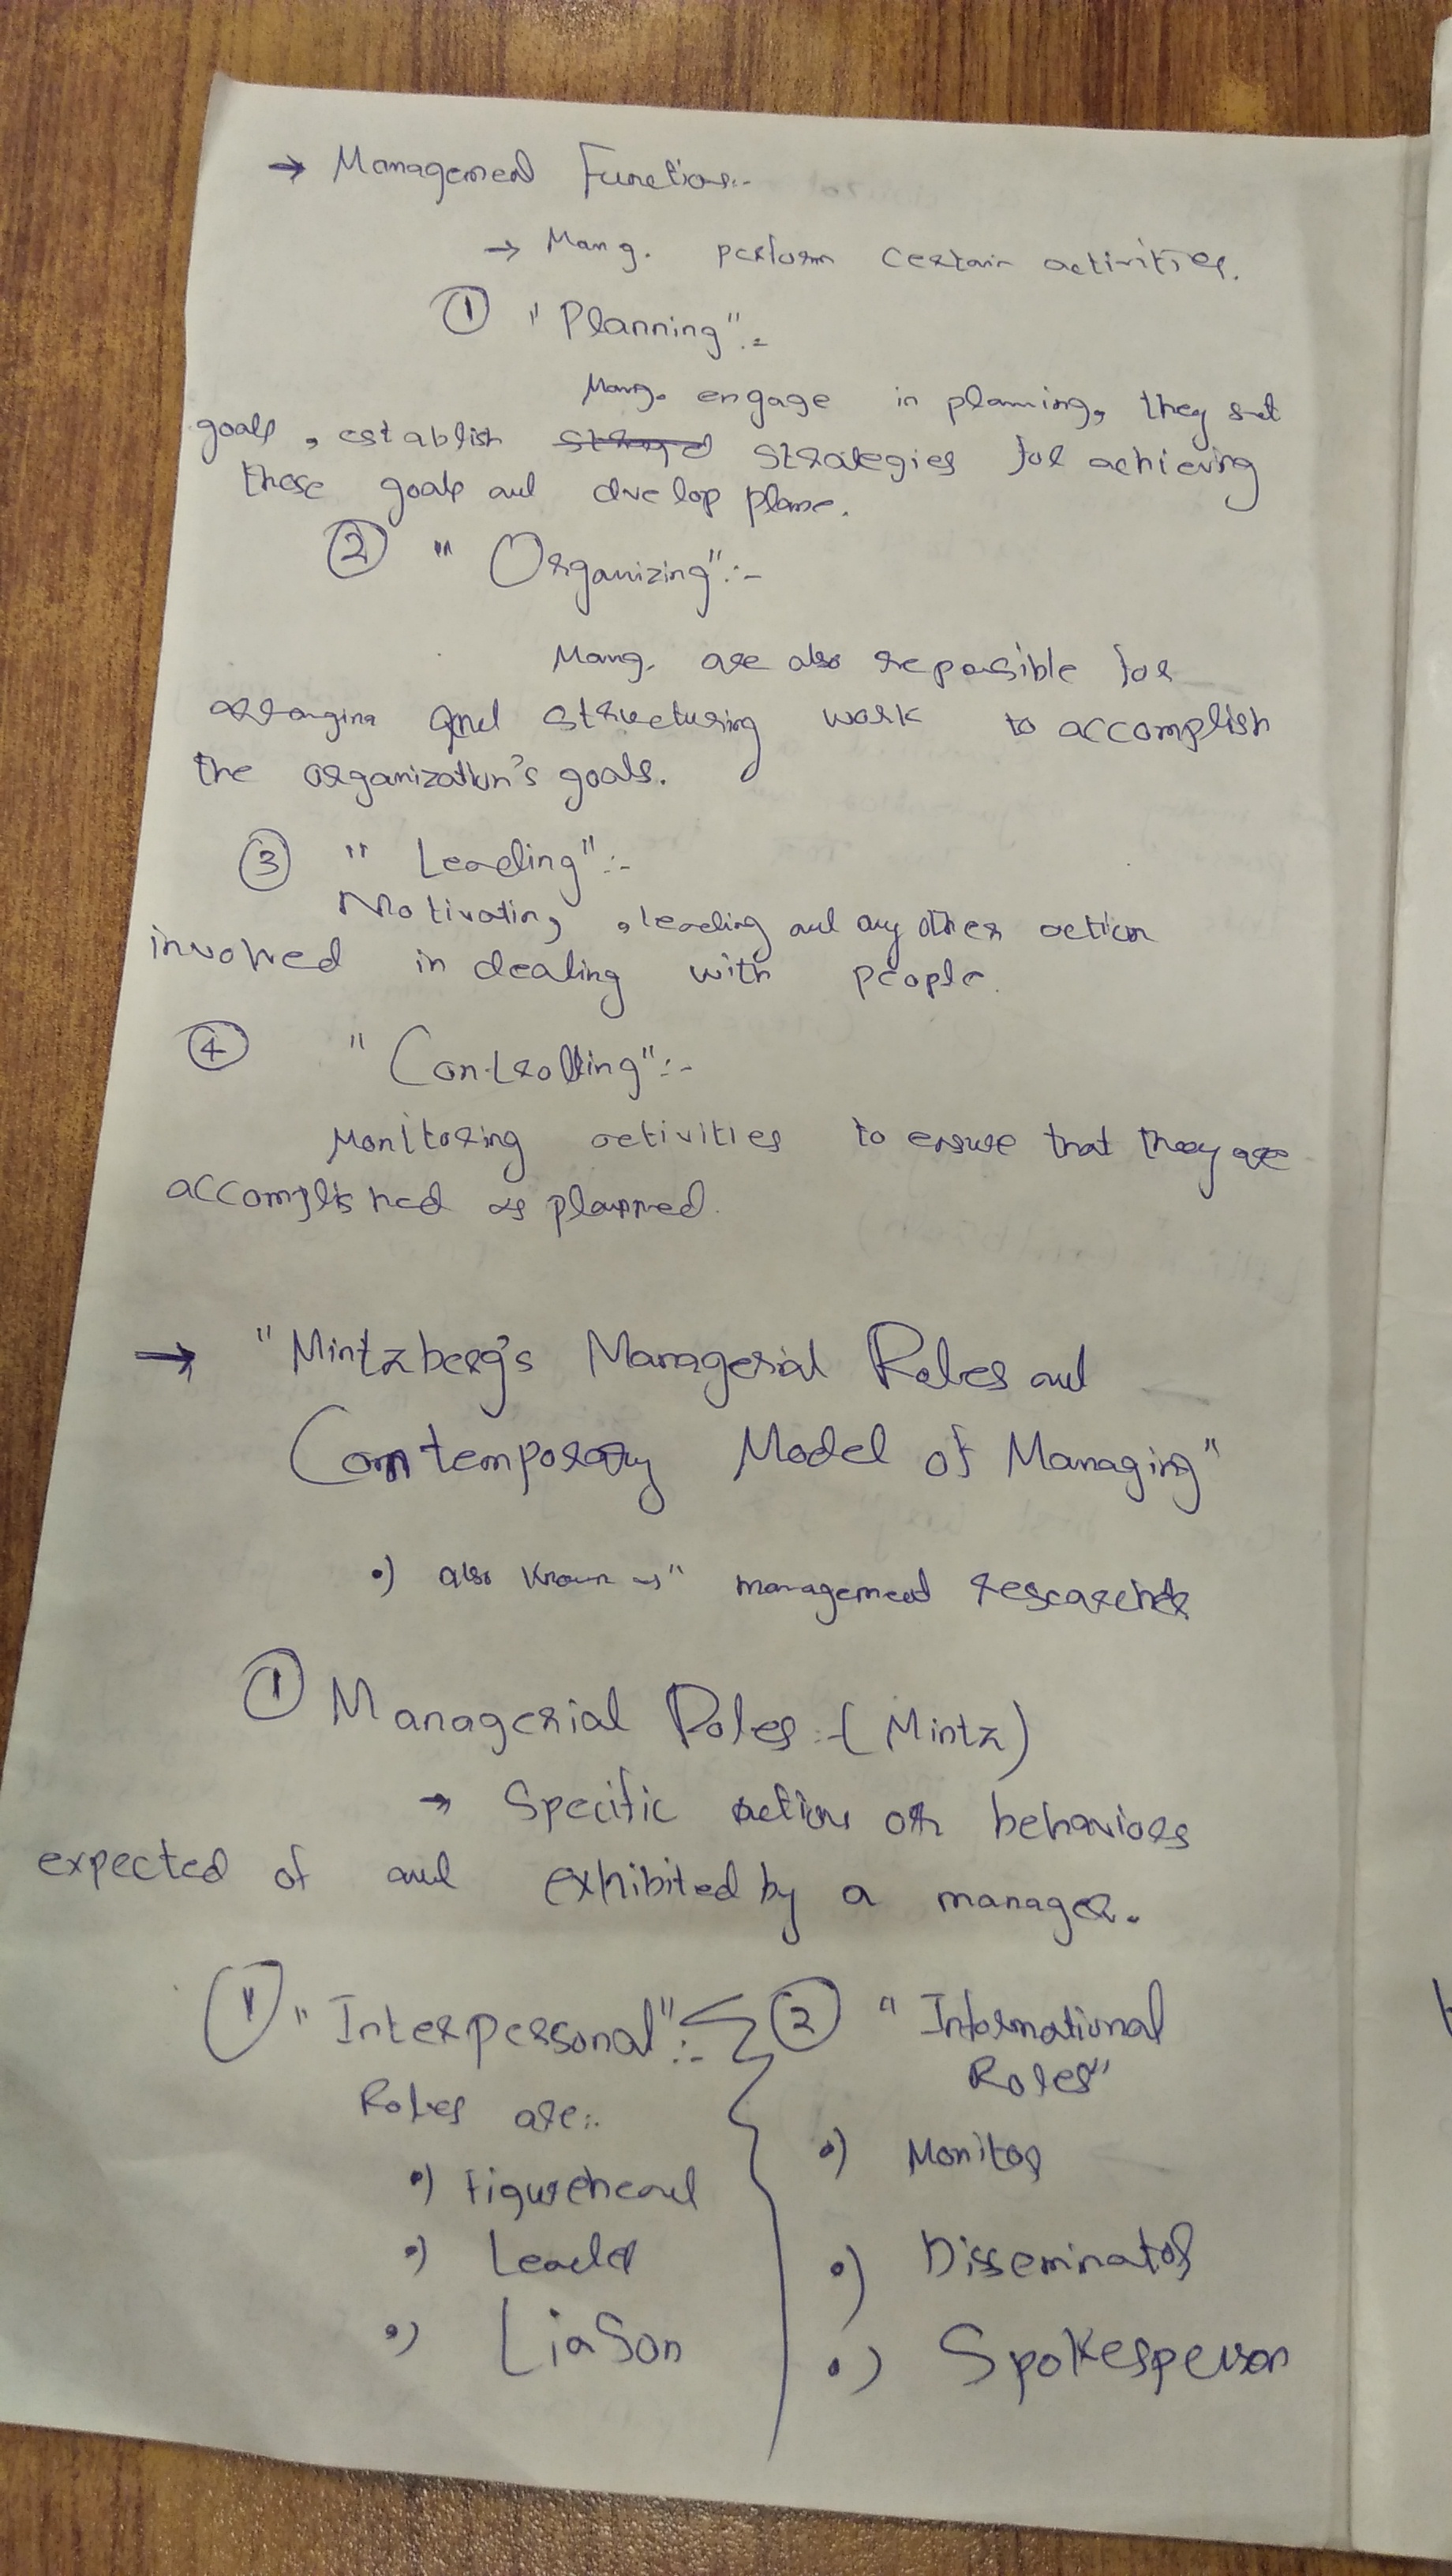 → Management Functions:-
→ Mang. perform certain activities.
① "Planning":-
Mang. engage in planning, they set
goals, establish strategies for achieving
these goals and dvelop plans.
② "Organizing":-
Mang. are also reposible for
arrangine and structuring work to accomplish
the organization's goals.
③ "Leading":-
Motivating, leading and any other action
involved in dealing with people.
④ "Controlling":-
Monitoring activities to ensure that they are
accomplished as planned.
→ "Mintzberg's Managerial Roles and
Comtemporary Model of Managing"
•) also known as" management researcher
① Managerial Roles:-(Mintz)
→ Specific actions or behaviors
expected of and exhibited by a manager.
① "Interpersonal":-
Roles are:-
•) Figurehead
•) Leader
•) Liason
② "Informational
Roles"
•) Monitor
•) Disseminator
•) Spokesperson